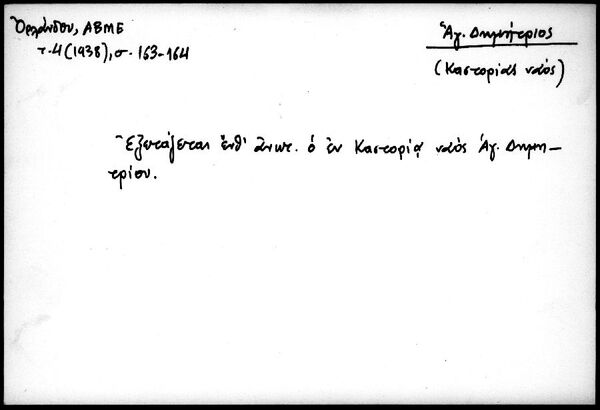 Ὀρλάνδου, ΑΒΜΕ
τ. 4 (1938), σ. 163-164
Ἅγ. Δημήτριος
(Καστοριᾶς ναός)
Ἐξετάζεται ἔνθ' ἀνωτ. ὁ ἐν Καστορίᾳ ναὸς Ἁγ. Δημη-
τρίου.